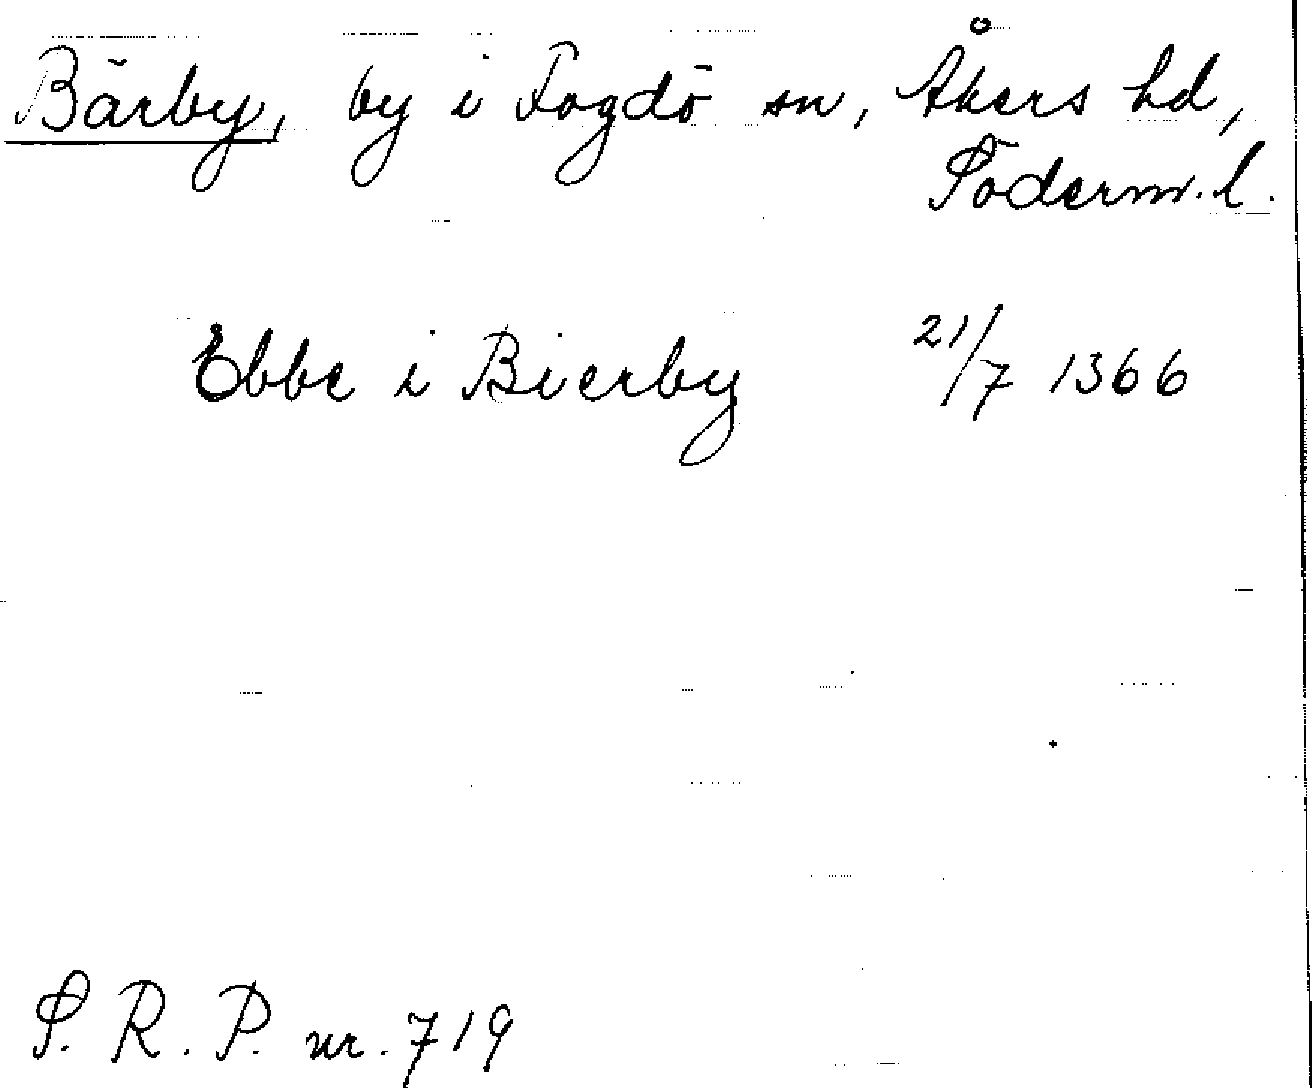 Bärby, by i Fogdö sn, Åkers hd,
Söderm.l.
Ebbe i Bierby 21/7 1366
S. R. P. nr. 719